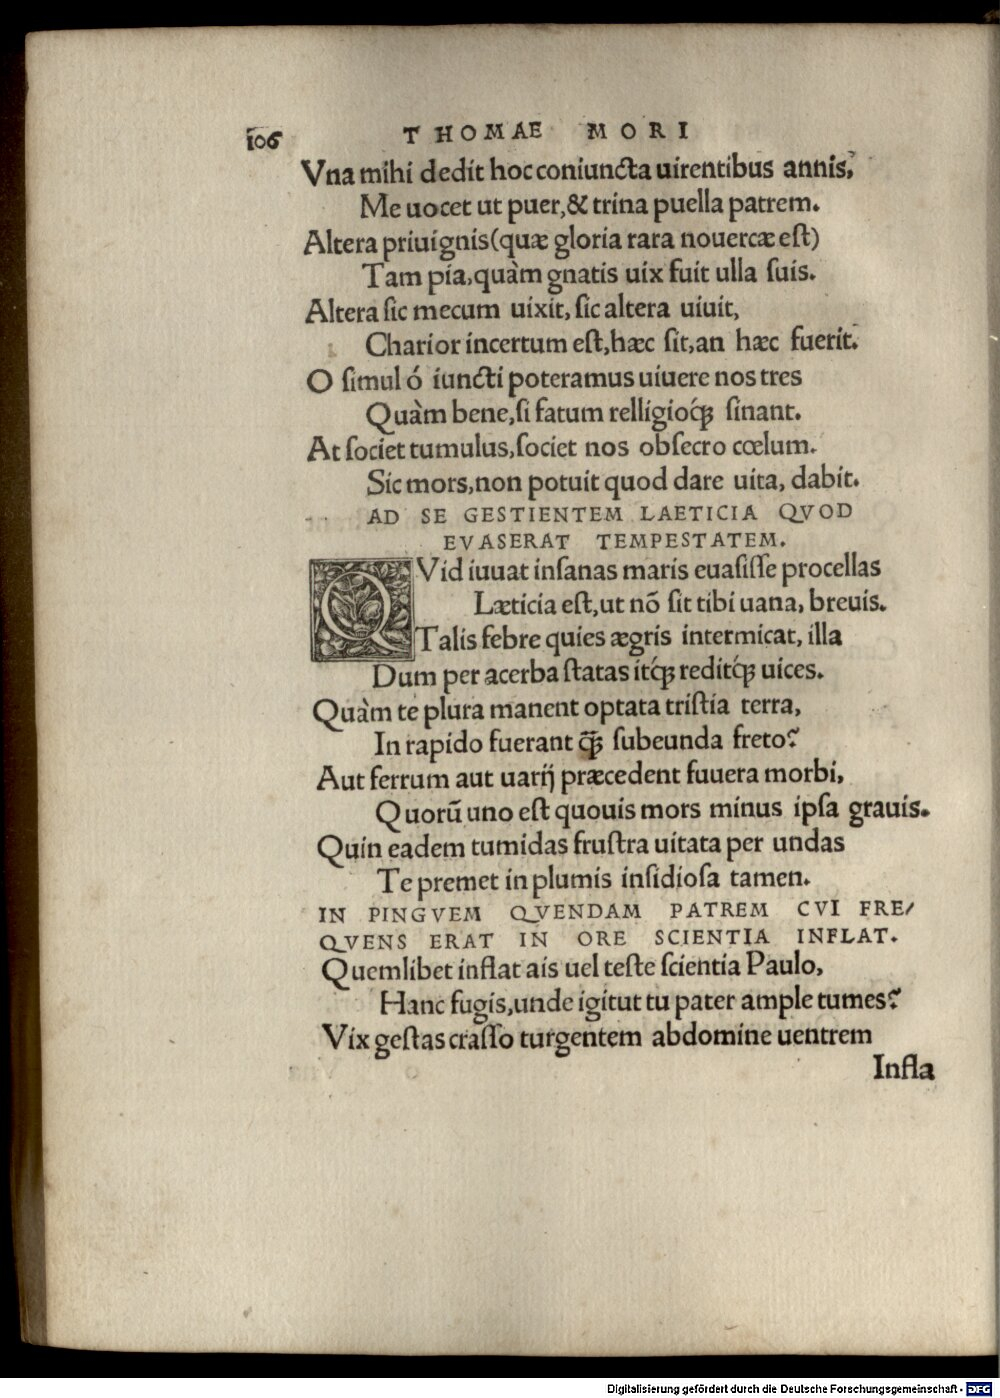 106 THOMAE MORI
Vna mihi dedit hoc coniuncta uirentibus annis,
Me uocet ut puer,& trina puella patrem.
Altera priuignis(quæ gloria rara nouercæ est)
Tam pia,quàm gnatis uix fuit ulla suis.
Altera sic mecum uixit, sic altera uiuit,
Charior incertum est,hæc sit,an hæc fuerit.
O simul ó iuncti poteramus uiuere nos tres
Quàm bene,si fatum relligioq́ꝫ sinant.
At societ tumulus,societ nos obsecro cœlum.
Sic mors,non potuit quod dare uita, dabit.
AD SE GESTIENTEM LAETICIA QVOD
EVASERAT TEMPESTATEM.
QVid iuuat insanas maris euasisse procellas
Læticia est,ut nō sit tibi uana, breuis.
Talis febre quies ægris intermicat, illa
Dum per acerba statas itq́ꝫ reditq́ꝫ uices.
Quàm te plura manent optata tristia terra,
In rapido fuerant q̄ꝫ subeunda freto?
Aut ferrum aut uarij præcedent fuuera morbi,
Quorū uno est quouis mors minus ipsa grauis.
Quin eadem tumidas frustra uitata per undas
Te premet in plumis insidiosa tamen.
IN PINGVEM QVENDAM PATREM CVI FRE/
QVENS ERAT IN ORE SCIENTIA INFLAT.
Quemlibet inflat ais uel teste scientia Paulo,
Hanc fugis,unde igitut tu pater ample tumes?
Vix gestas crasso turgentem abdomine uentrem
Infla
Digitalisierung gefördert durch die Deutsche Forschungsgemeinschaft - DFG